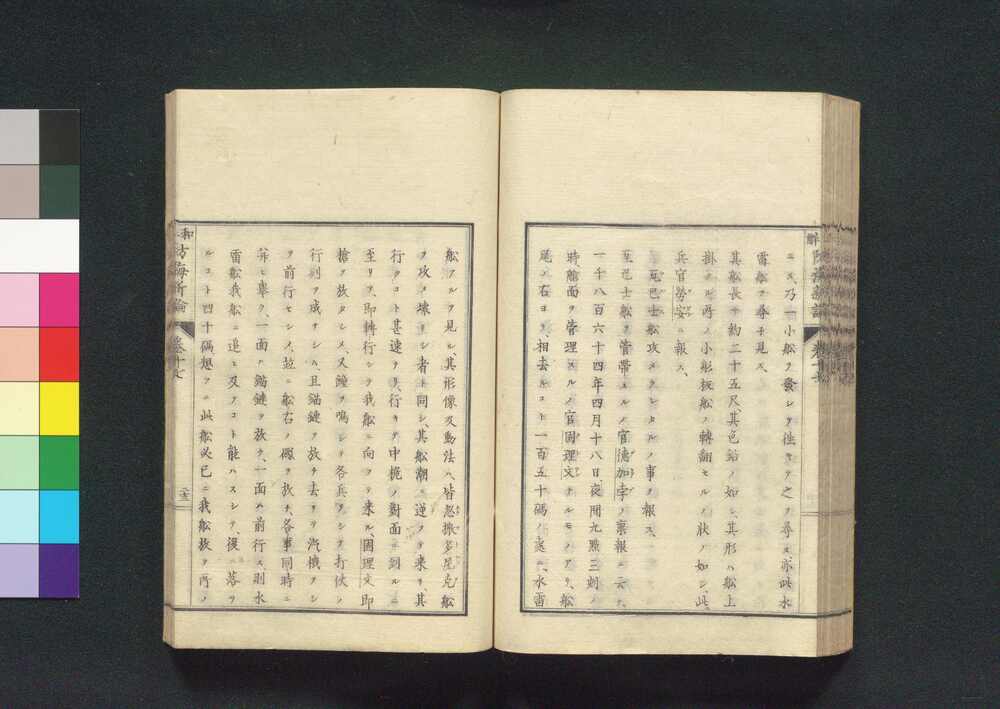 ニス乃一小船ヲ発シテ往キテ之ヲ尋ヌ亦此水
雷船ヲ尋子見ス、
其船長サ約二十五尺、其色鉛ノ如シ、其形ハ船上
掛クル所ノ小形板船ノ轉翻セルノ状ノ如シ、此レ
兵官労安ニ報ス、
瓦巴士船攻メラレタルノ事ヲ報ス、
瓦巴士船ヲ管帯スルノ官德加孛ノ禀報ニ云ク、
一千八百六十四年四月十八日、夜間九點三刻ノ
時艙面ヲ管理スルノ官固理文ナルモノアリ、船
尾ノ右ヨリ相去ルコト一百五十碼ノ處ニ、水雷
船アルヲ見ル、其形像及動法ハ、皆
船
ヲ攻メ壊リシ者ト同シ、其船潮ニ逆フテ来リ、其
行クコト甚速ナリ、行キテ中桅ノ對面ニ到ルニ
至リ、即轉行シテ我船ニ向フテ来ル、固理文即
槍ヲ放タシメ、又鐘ヲ鳴シテ各兵ヲシテ打仗ノ
行列ヲ成サシハ、且錨鏈ヲ放チ去リテ汽機ヲシテ
ヲ前行セシメ、竝ニ船右ノ礟ヲ放チ、各事同時ニ
竝ヒ擧ク、一面ハ錨鏈ヲ放チ、一面ハ前行ス、則水
雷船我船ニ追ヒ及フコト能ハスシテ、後ニ落ツ
ルコト四十碼、想フニ此船必已ニ我船放ツ所ノ
防海新論
巻十七
二十三